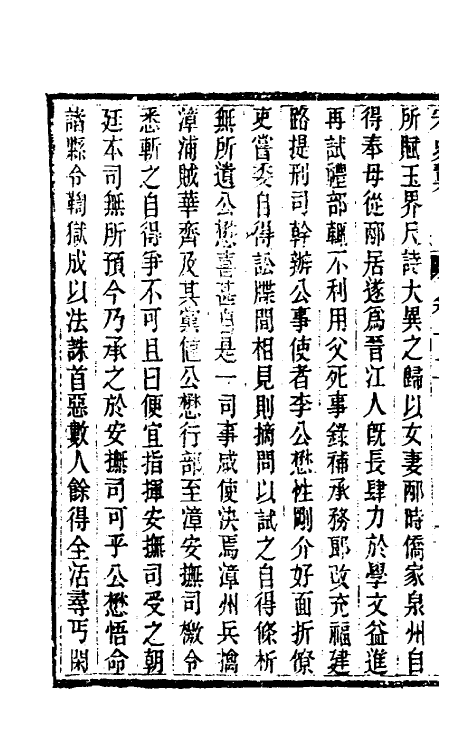 所賦玉界尺詩大異之歸以女妻邴時僑家泉州自
得奉母從邴居遂爲晉江人旣長肆力於學文益進
再試禮部輒不利用父死事錄補承務郎改充福建
路提刑司幹辦公事使者李公懋性剛介好面折僚
吏嘗委自得訟牒間相見則摘問以試之自得條析
無所遺公懋喜甚自是一司事咸使決焉漳州兵擒
漳浦賊華齊及其黨值公懋行部至漳安撫司檄令
悉斬之自得爭不可且曰便宜指揮安撫司受之朝
廷本司無所預今乃承之於安撫司可乎公懋悟命
諸縣令鞫獄成以法誅首惡數人餘得全活尋丐閑